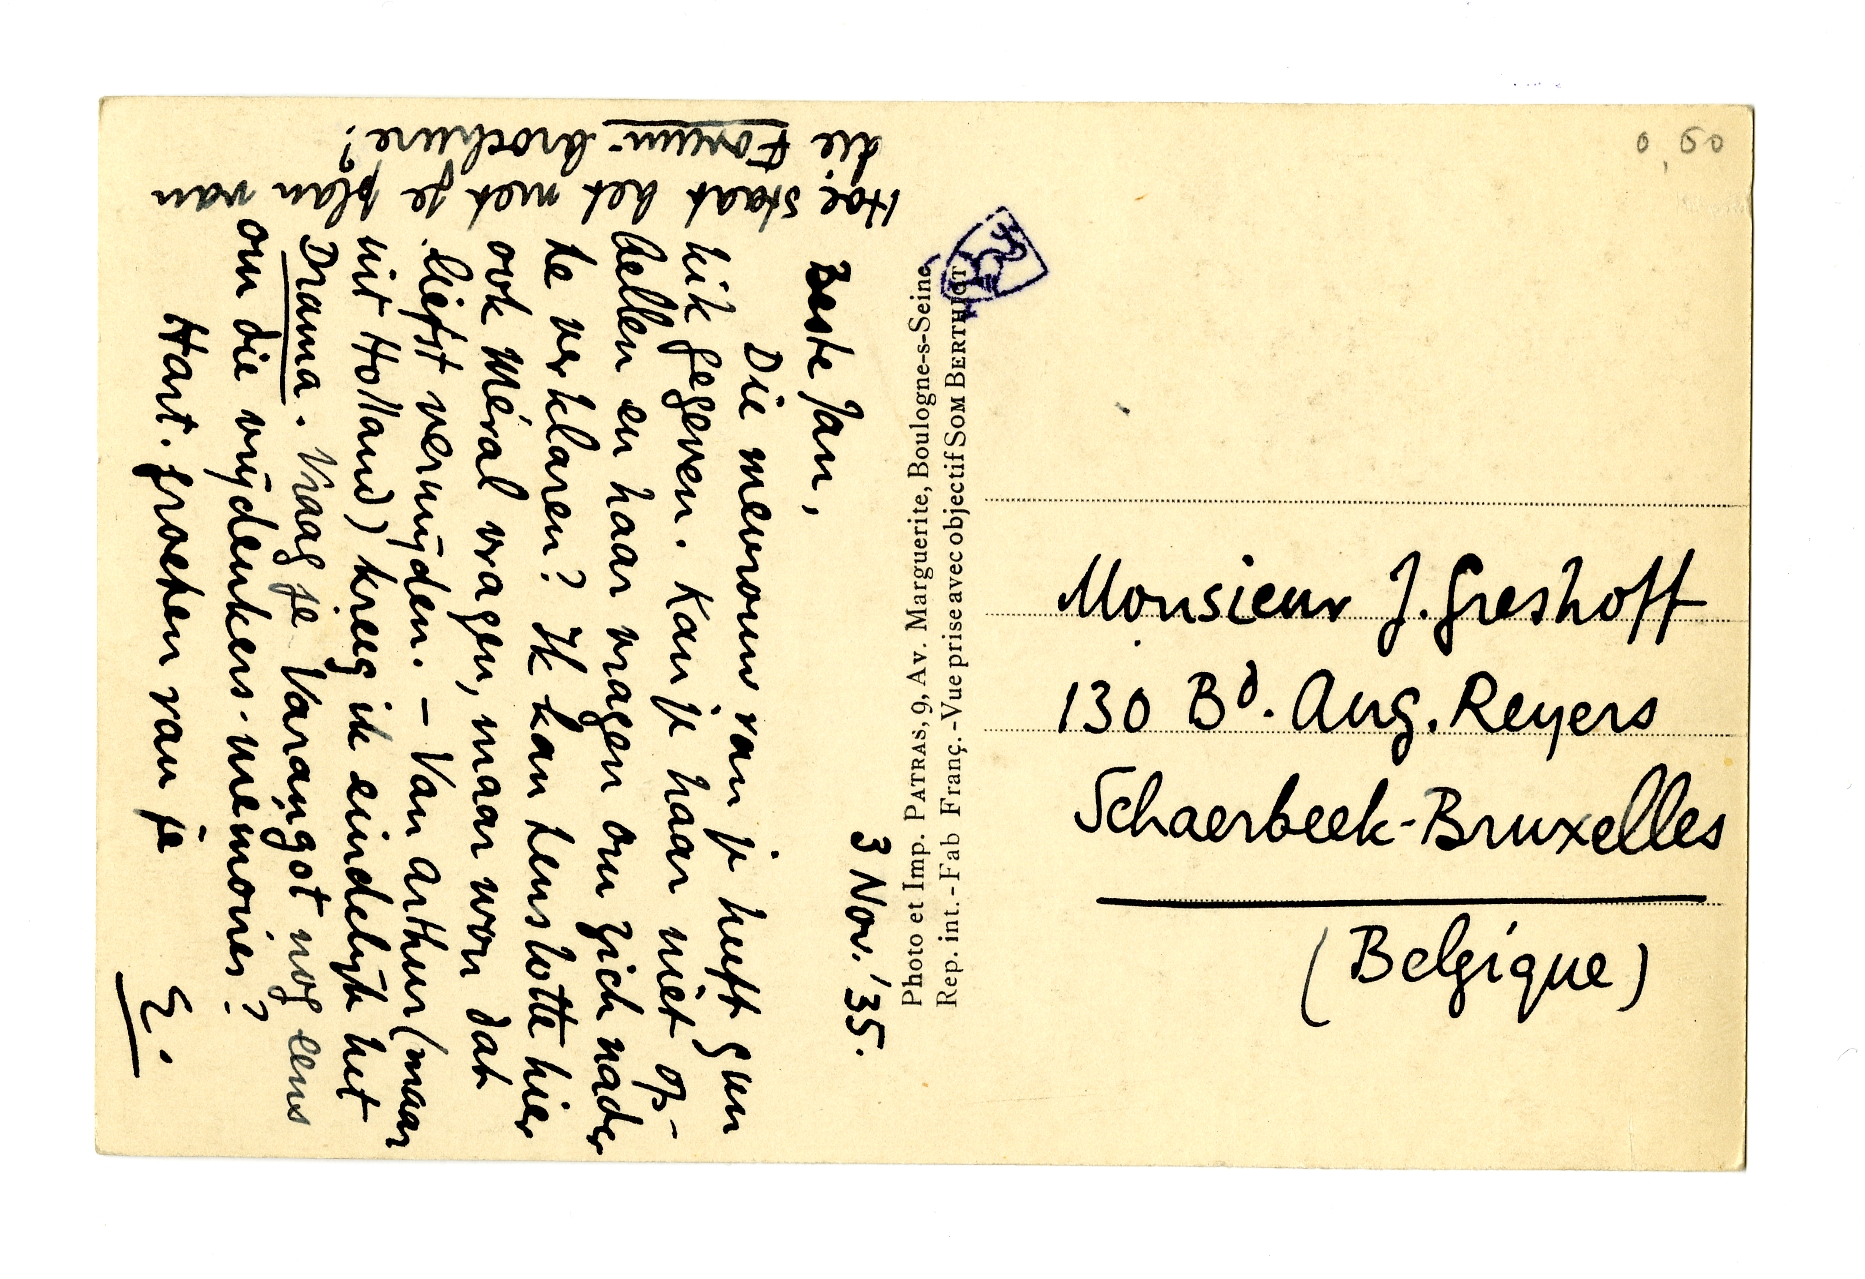 3 Nov. '35.
Beste Jan,
Die mevrouw van je heeft geen
kik gegeven. Kan je haar niet op-
bellen en haar vragen om zich nader
te verklaren? Ik kan tenslotte hier
ook Méral vragen, maar wou dat
liefst vermijden. – Van Arthur (maar
uit Holland) kreeg ik eindelijk het
Drama. Vraag je Varangot nog eens
om die vrijdenkers-memories?
Hart. groeten van je
E.
Hoe staat het met je plan van
die Forum-brochure?
Photo et Imp. PATRAS, 9, Av. Marguerite, Boulogne-s-Seine
Rep. int. - Fab Franç. - Vue prise avec objectif SOM BERTHIOT
0,60
Monsieur J. Greshoff
130 Bd. Aug. Reyers
Schaerbeek-Bruxelles
(Belgique)